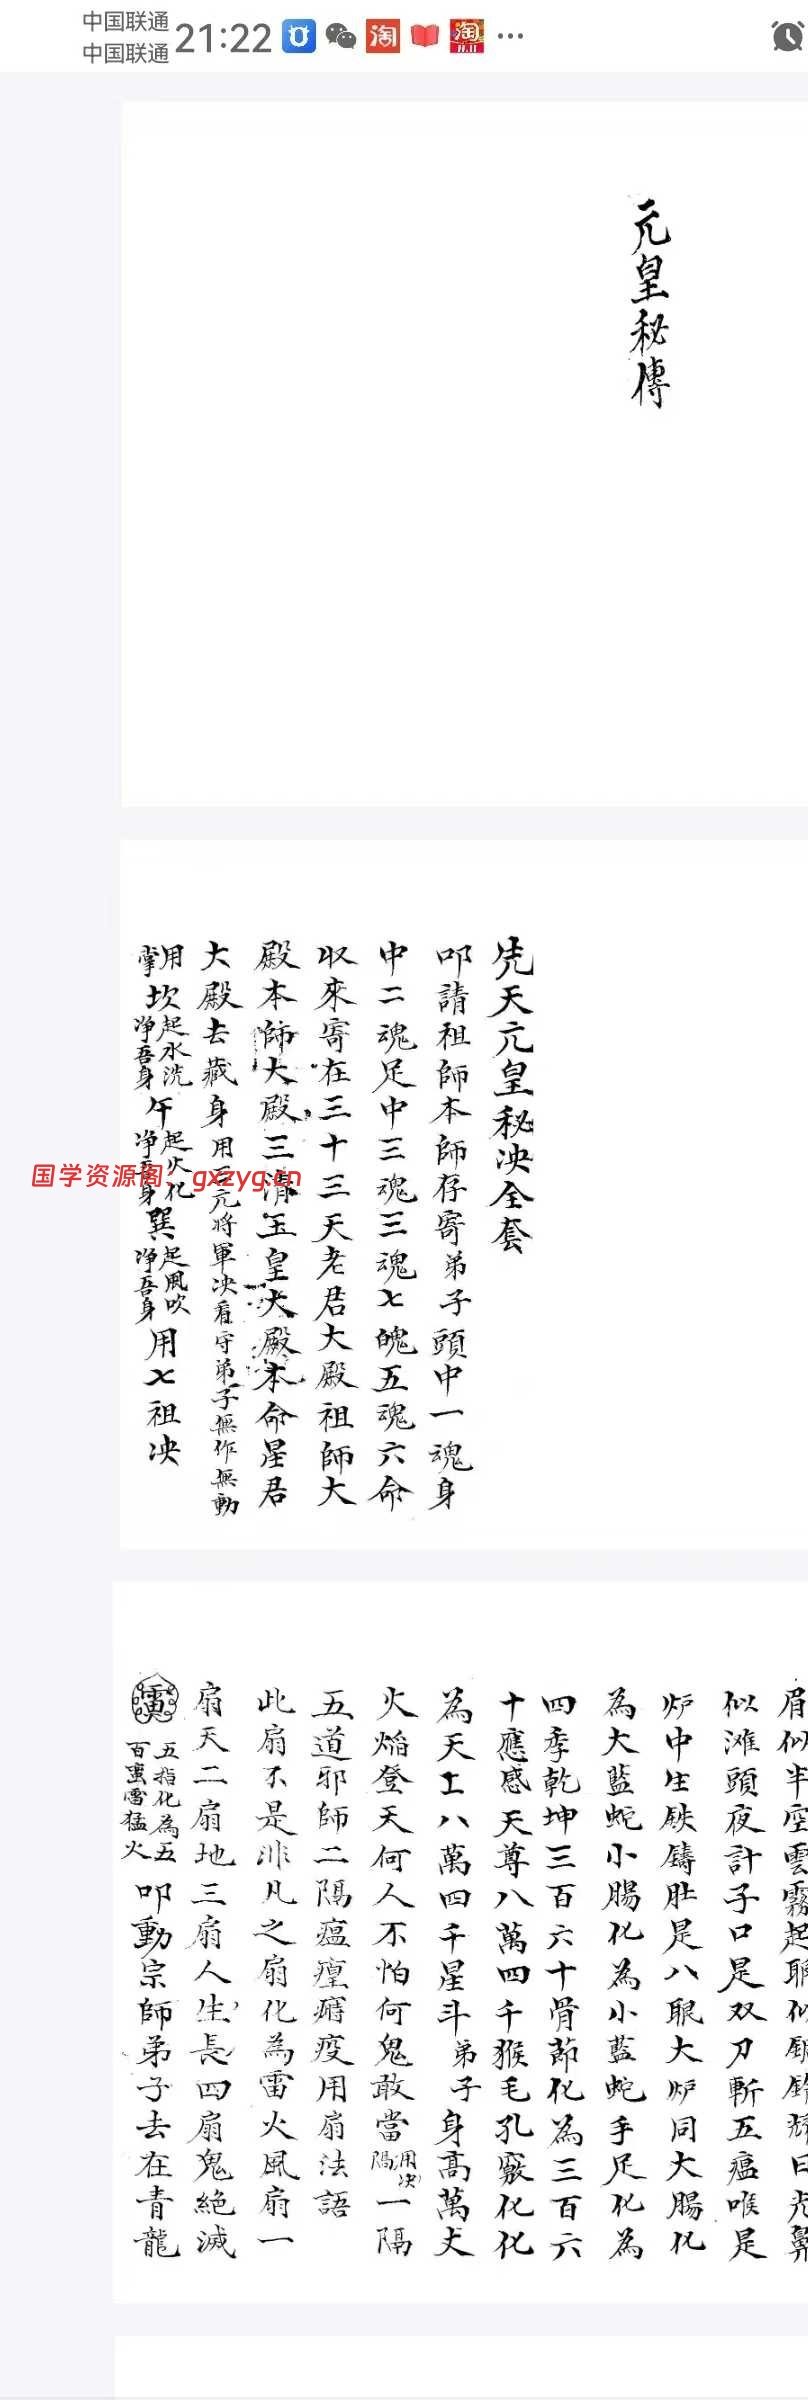 中国联通
中国联通
21:22
元皇秘傳
先天元皇秘决全套
叩請祖師本師存寄弟子頭中一魂身
中二魂足中三魂三魂七魄五魂六命
收來寄在三十三天老君大殿祖師大
殿本師大殿三清玉皇大殿本命星君
大殿去藏身用三元將軍决看守弟子無作無動
用掌坎起水洗净吾身午起火化净吾身巽起風吹净吾身用七祖决
国学资源阁：gxzyg.cn
眉似半空雲霧起眼似銅鈴
似滩頭夜計子口是双刀斬五瘟喉是
炉中生鉄鑄肚是八眼大炉同大腸化
為大藍蛇小腸化為小藍蛇手足化為
四季乾坤三百六十骨節化為三百六
十應感天尊八萬四千猴毛孔竅化化
為天上八萬四千星斗弟子身高萬丈
火焰登天何人不怕何鬼敢當用决隔一隔
五道邪師二隔瘟㾮癆疫用扇法語
此扇不是非凡之扇化為雷火風扇一
扇天二扇地三扇人生長四扇鬼絕滅
五指化為五百蛮雷猛火叩動宗師弟子去在青龍